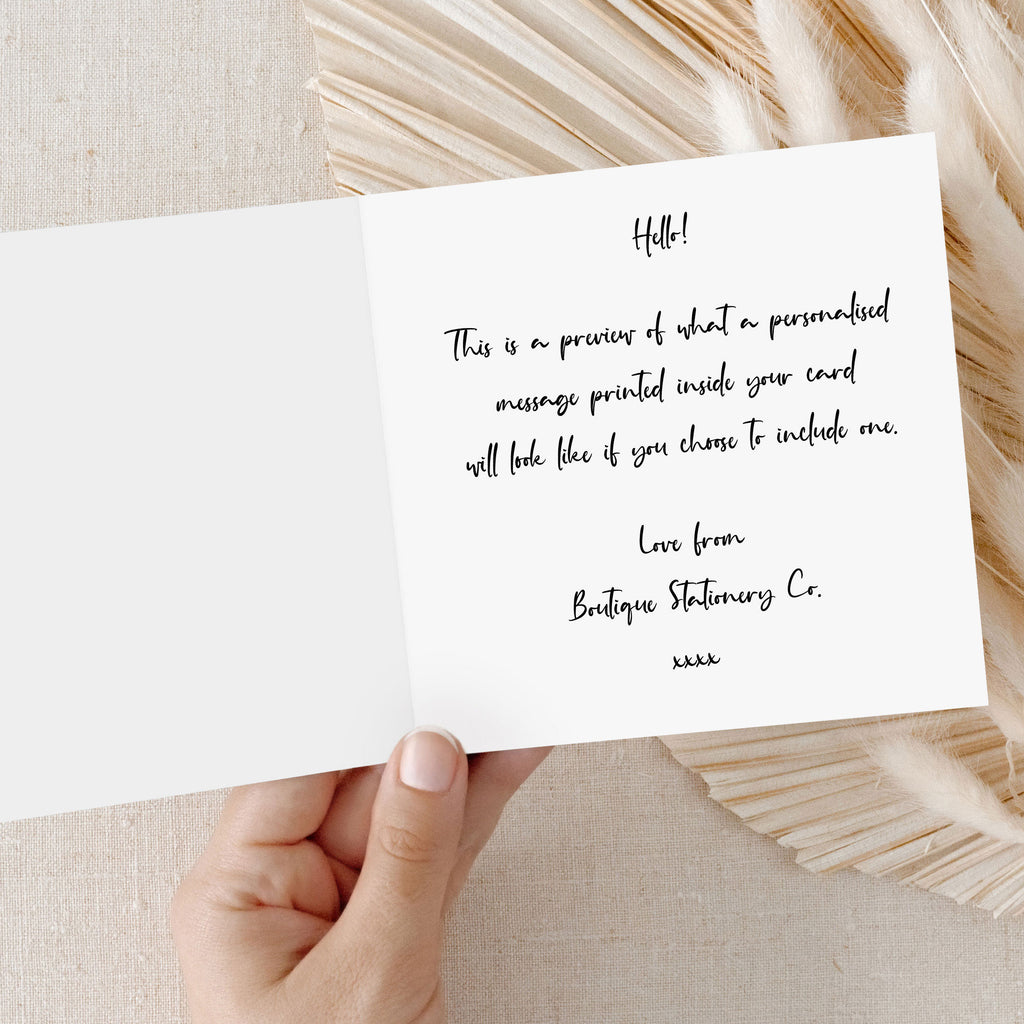 Hello!
This is a preview of what a personalised
message printed inside your card
will look like if you choose to include one.
Love from
Boutique Stationery Co.
xxxx